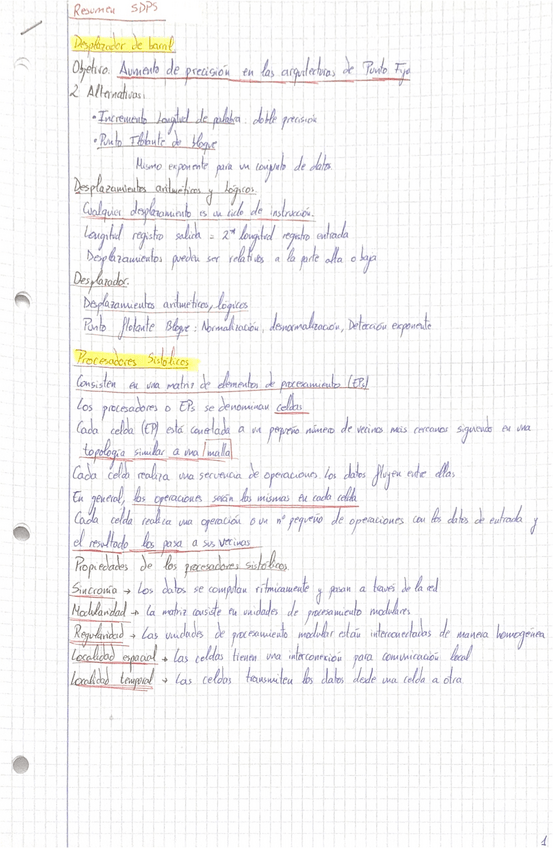 Resumen SDPS
Desplazador de barril
Objetivo: Aumento de precisión en las arquitecturas de Punto Fijo
2 Alternativas:
• Incremento Longitud de palabra, doble precisión
• Punto Flotante de bloque
Mismo exponente para un conjunto de datos
Desplazamientos aritméticos y lógicos.
Cualquier desplazamiento es un ciclo de instrucción.
Longitud registro salida = 2* longitud registro entrada
Desplazamientos pueden ser relativos a la parte alta o baja
Desplazador.
Desplazamientos aritméticos, lógicos
Punto flotante Bloque: Normalización, desnormalización, Detección exponente
Procesadores Sistólicos
Consisten en una matriz de elementos de procesamiento (EPs)
Los procesadores o EPs se denominan celdas
Cada celda (EP) está conectada a un pequeño número de vecinos más cercanos siguiendo en una
topología similar a una malla
Cada celda realiza una secuencia de operaciones. Los datos fluyen entre ellas
En general, las operaciones serán las mismas en cada celda
Cada celda realiza una operación o un nº pequeño de operaciones con los datos de entrada y
el resultado los pasa a sus vecinas
Propiedades de los procesadores sistólicos.
Sincronía → Los datos se computan rítmicamente y pasan a través de la red
Modularidad → La matriz consiste en unidades de procesamiento modulares
Regularidad → Las unidades de procesamiento modular están interconectadas de manera homogénea
Localidad espacial → Las celdas tienen una interconexión para comunicación local
Localidad temporal → Las celdas transmiten los datos desde una celda a otra
1